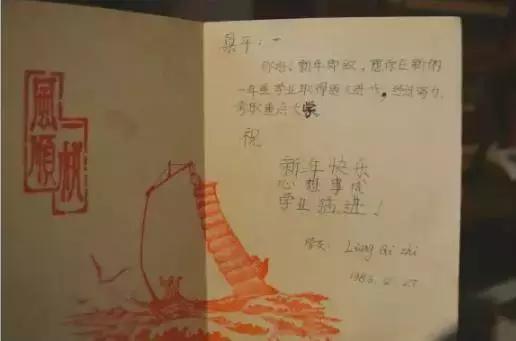 一帆
風順
平：
你好，新年即致，愿你在新的
一年里学业取得进步，经过努力，
考取重点大学
祝
新年快乐
心想事成
学业猛进！
学友：Liang Qi zhi
27